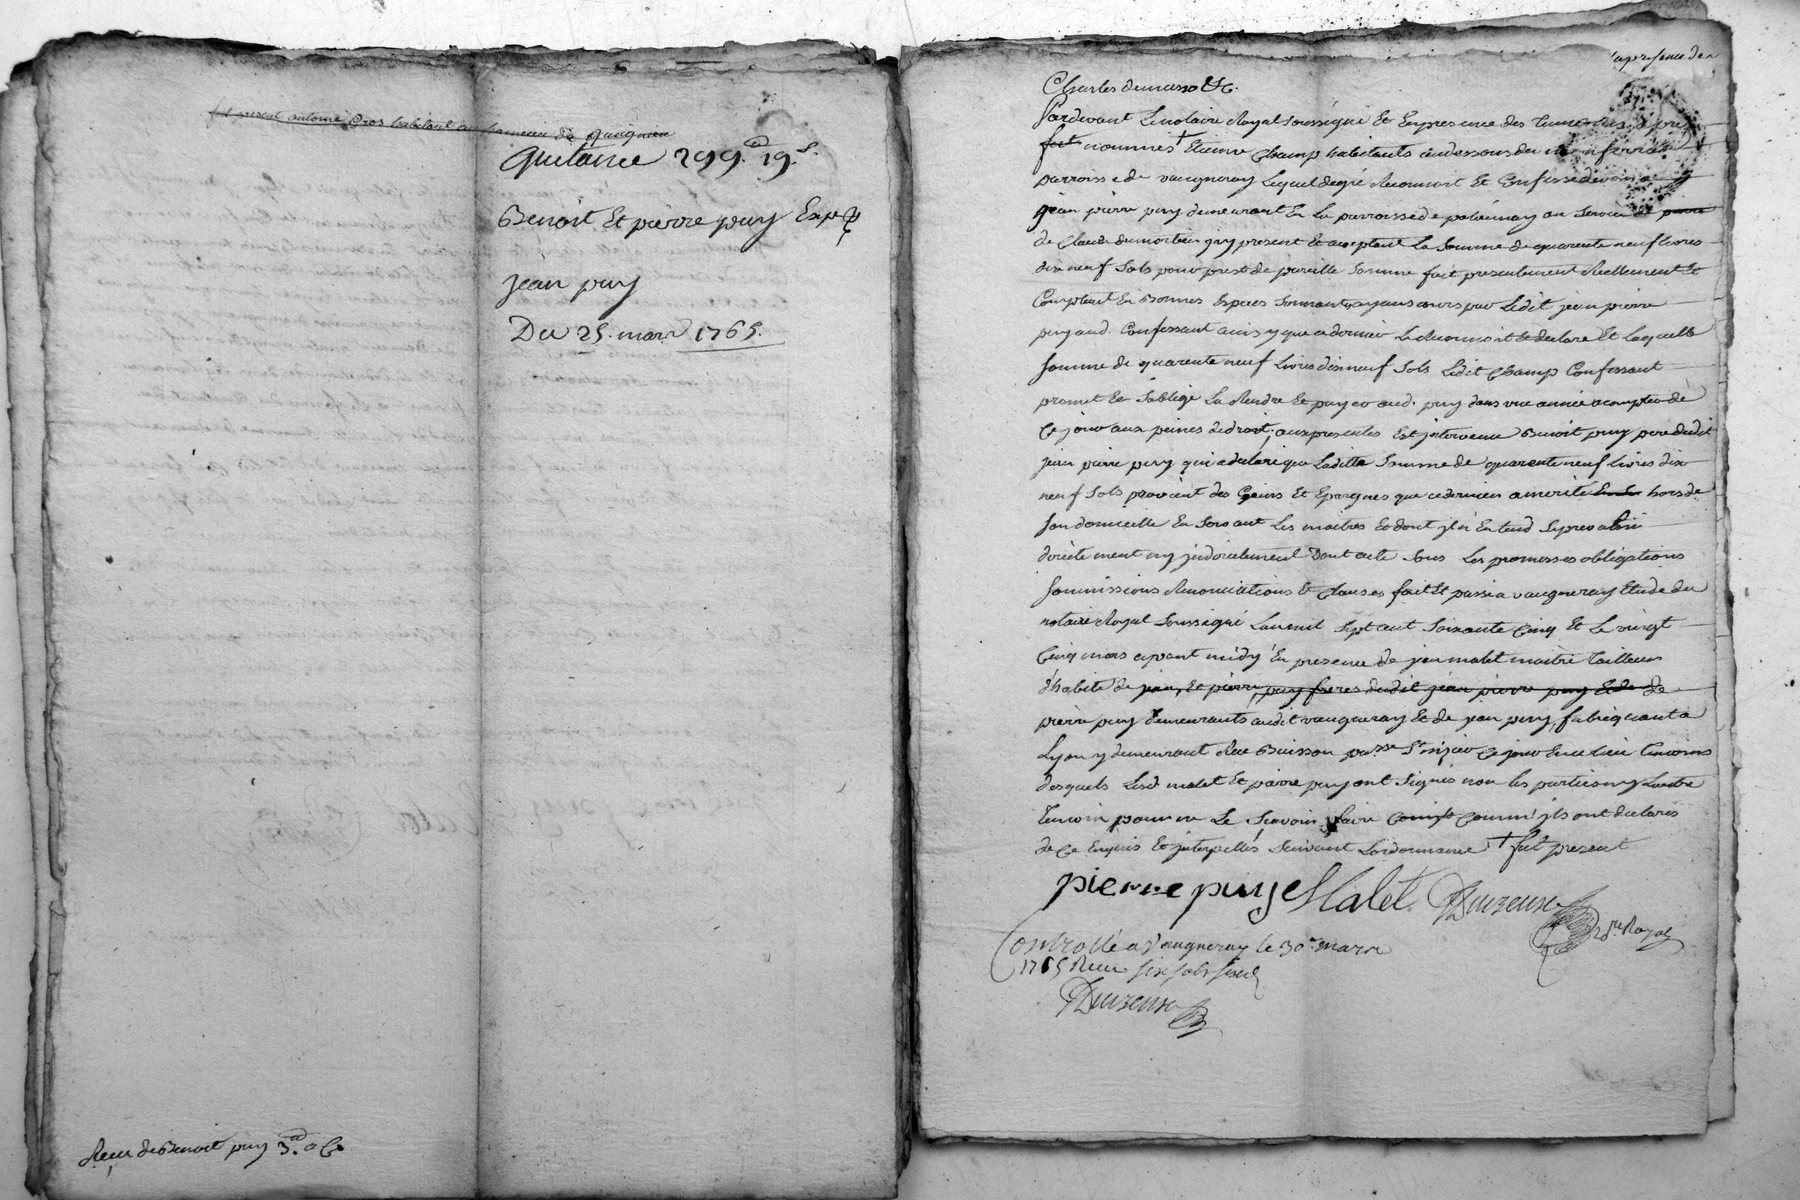 fut present antoine Gros habitant au hameau de
Quitance 299.# 19.s
Benoit Et pierre puy
jean puy
Du 25. mars 1765.
Recu de Benoit puy 3.#
presence de
Charles demasso &c.
Pardevant Le notaire Royal soussigné Et En presence des Temoins
fut nommés † Etienne Champ habitants au dessous du
parroisse de vaugneray Lequel degré Reconnoit Et Confesse devoir a
jean pierre puy demeurant En La parroisse de polionnay au Service de pierre
de Claude dumortier jcy present Et acceptant La Somme de quarente neuf livres
dix neuf Sols pour prest de pareille Somme fait presentement Reellement Et
Comptant En Bonnes Especes Sonnantes ayans cours par Ledit jean pierre
puy aud. Confessant ainsy que ce dernier Le Reconnoit Et declare Et Laquelle
Somme de quarente neuf Livres dix neuf Sols Ledit Champ Confessant
promet Et S'oblige La Rendre Et payer aud. puy dans une année a compter de
Ce jour aux peines de droit, aux presentes Est jntervenu Benoit puy pere dudit
jean pierre puy qui a declaré que Laditte Somme de quarente neuf Livres dix
neuf Sols provient des Gains Et Epargnes que ce dernier a merité En Se hors de
Son domicille En Servant Les maitres Et dont jl n'Entend Se prevaloir
directement ny jndirectement Dont acte Sous Les promesses obligations
Soumissions Renonciations Et Clauses fait Et passé a vaugneray Etude du
notaire Royal Soussigné L'an mil Sept cent Soixante Cinq Et Le vingt
Cinq mars avant midy En presence de jean malet maitre Tailleur
d'habits de jean, Et pierre puy freres dudit jean pierre puy Et de de
pierre puy demeurants audit vaugneray Et de jean puy, fabriquant a
Lyon y demeurant Rue Buisson pa.sse St. nizier Ce jour En ce lieu Temoins
desquels Lesd. malet Et pierre puy ont Signés non les parties ny L'autre
Temoin pour ne Le Scavoir faire Comme jls ont declarés
de Ce Enquis Et jnterpellés Suivant L'ordonnance † fut present
pierre puy Malet Duzeuse
n.re Royal
Controllé a Vaugneray le 30e. mars
1765 Recu six sols six d
Duzeuse